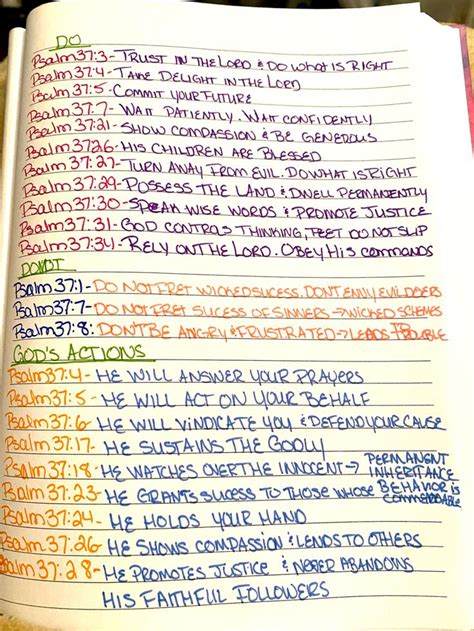 DO
Psalm 37:3- TRUST IN THE LORD & DO WHAT IS RIGHT
Psalm 37:4- TAKE DELIGHT IN THE LORD
Psalm 37:5- COMMIT YOUR FUTURE
Psalm 37:7- WAIT PATIENTLY. WAIT CONFIDENTLY
Psalm 37:21- SHOW COMPASSION & BE GENEROUS
Psalm 37:26- HIS CHILDREN ARE BLESSED
Psalm 37:27- TURN AWAY FROM EVIL. DO WHAT IS RIGHT
Psalm 37:29- POSSESS THE LAND & DWELL PERMANENTLY
Psalm 37:30- SPEAK WISE WORDS & PROMOTE JUSTICE
Psalm 37:31- GOD CONTROLS THINKING, FEET DO NOT SLIP
Psalm 37:34- RELY ON THE LORD. OBEY HIS COMMANDS
DON'T
Psalm 37:1- DO NOT FRET WICKED SUCESS. DON'T ENVY EVILDOERS
Psalm 37:7- DO NOT FRET SUCESS OF SINNERS → WICKED SCHEMES
Psalm 37:8: DON'T BE ANGRY & FRUSTRATED → LEADS TO TROUBLE
GOD'S ACTIONS
Psalm 37:4- HE WILL ANSWER YOUR PRAYERS
Psalm 37:5- HE WILL ACT ON YOUR BEHALF
Psalm 37:6- HE WILL VINDICATE YOU & DEFEND YOUR CAUSE
Psalm 37:17- HE SUSTAINS THE GODLY
Psalm 37:18- HE WATCHES OVER THE INNOCENT → PERMANENT INHERITANCE
Psalm 37:23- HE GRANTS SUCESS TO THOSE WHOSE BEHAVIOR IS COMMENDABLE
Psalm 37:24- HE HOLDS YOUR HAND
Psalm 37:26- HE SHOWS COMPASSION & LENDS TO OTHERS
Psalm 37:28- HE PROMOTES JUSTICE & NEVER ABANDONS
HIS FAITHFUL FOLLOWERS